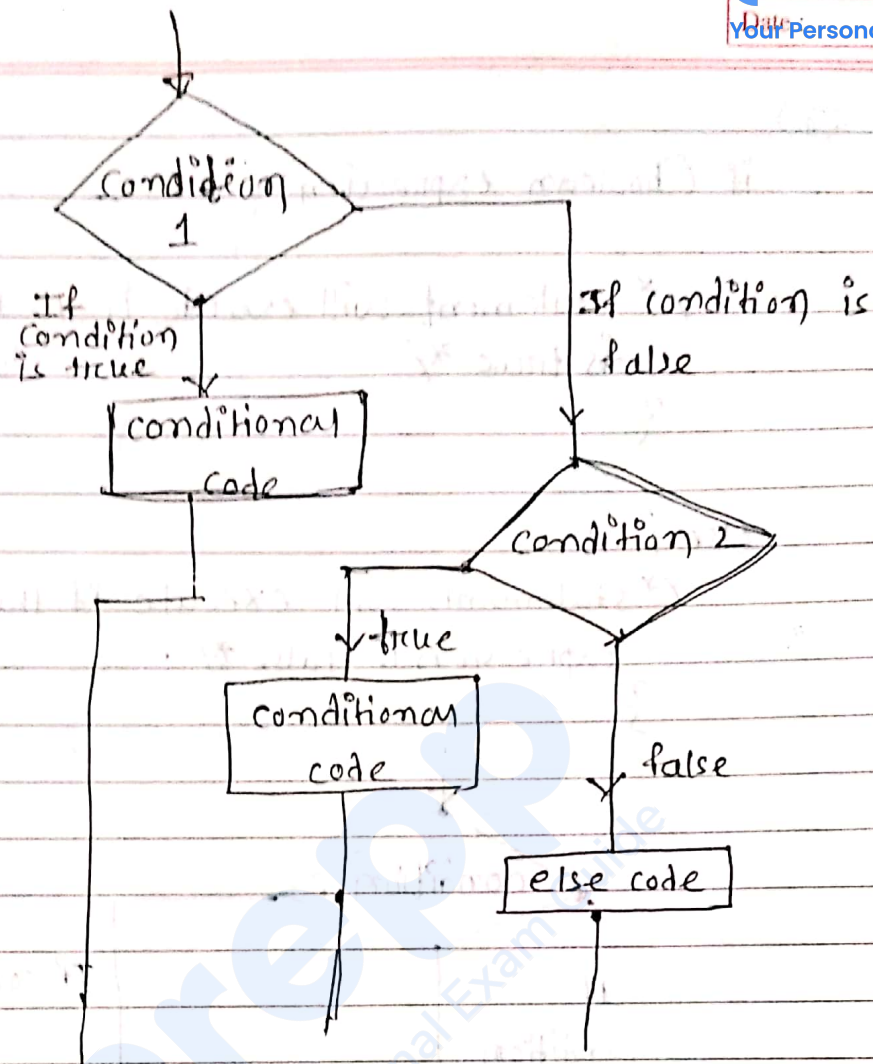 Date :
Your Persona
Condition
1
If
condition
is true
If condition is
false
conditional
code
condition 2
true
conditional
code
false
else code
prepp
nal Exam Guide